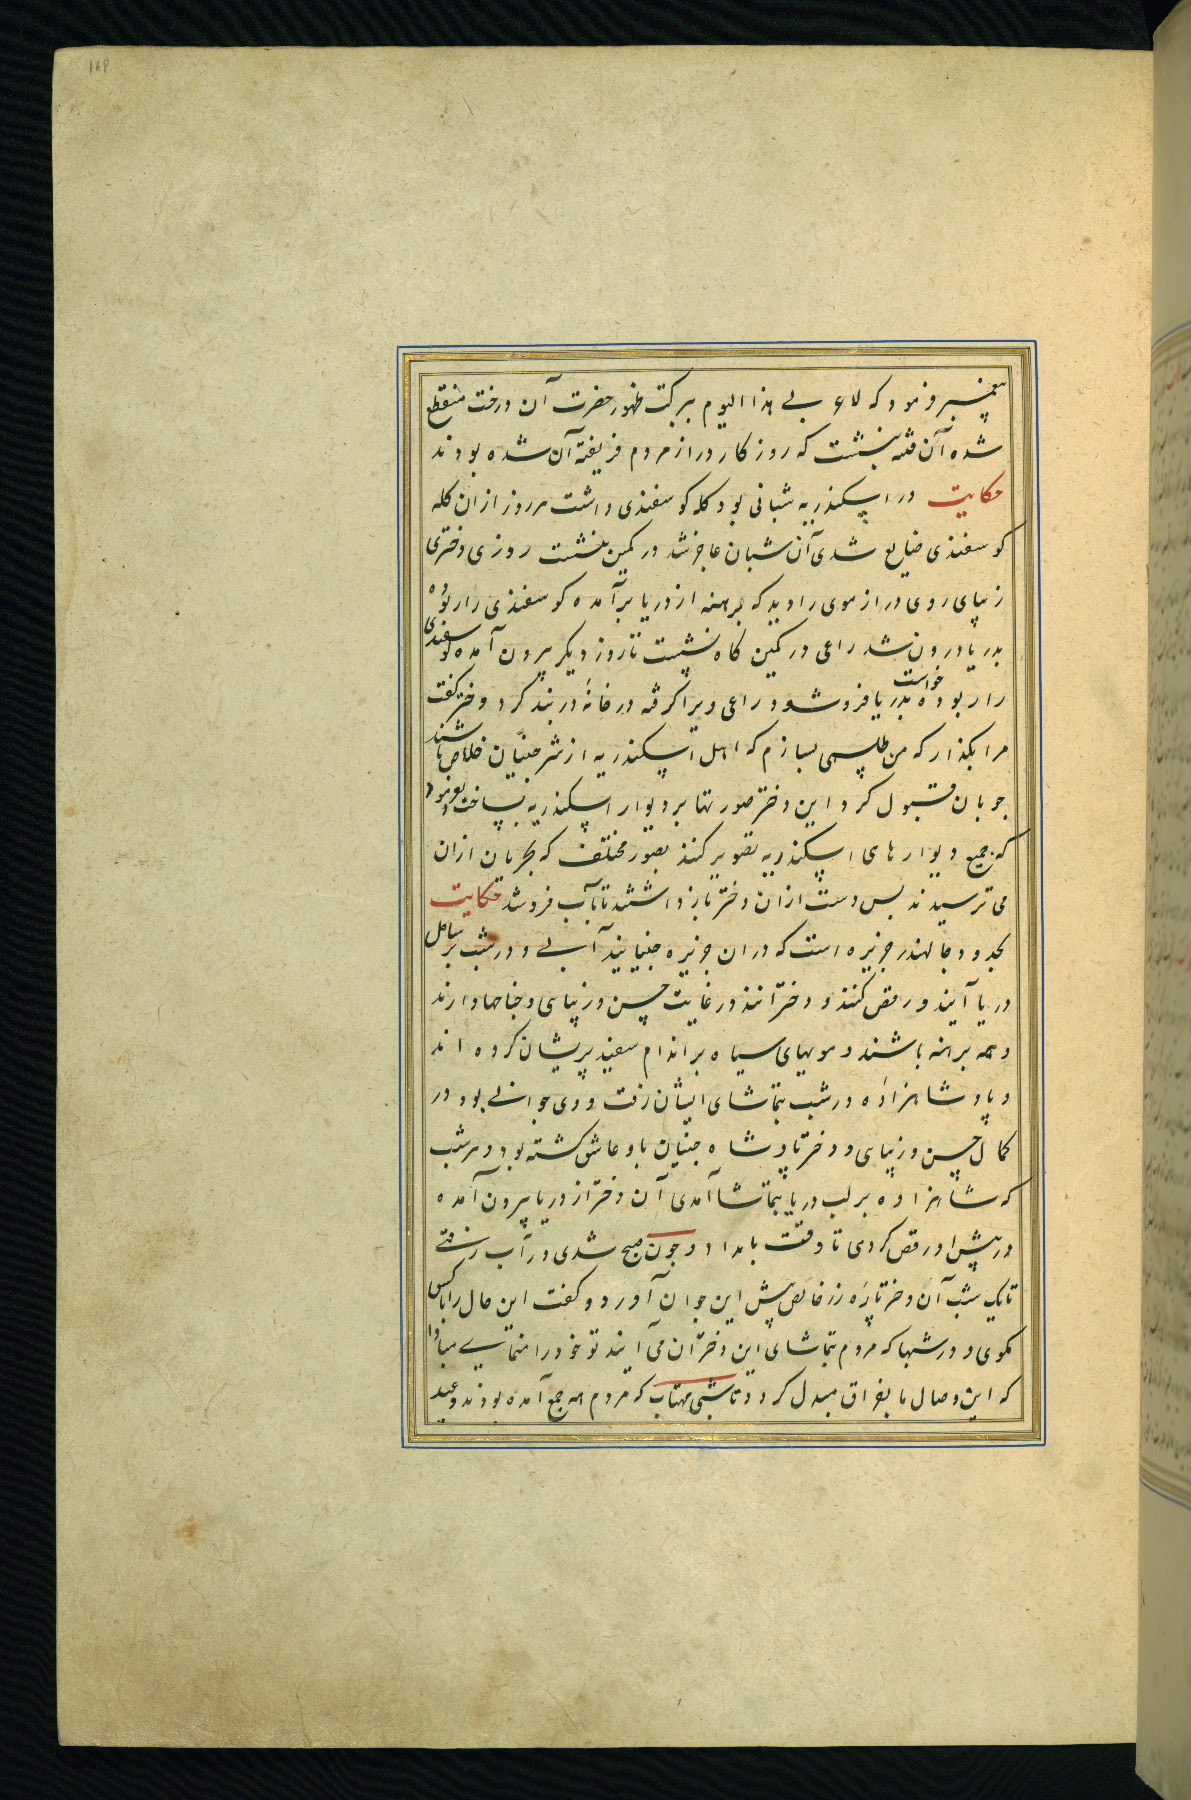 پیغمبر فرمود که لا عزی هذا الیوم ببرکت ظهور حضرت آن درخت منقطع
شده آن فتنه بنشست که روز کار دراز مردم فریفته آن شده بودند
حکایت در اسکندریه شبانی بود کله کوسفندی داشت هر روز ازان کله
کوسفندی ضایع شدی آن شبان عاجز شد در کمین بنشست روزی دختری
زیبای روی دراز موی را دید که برهنه از دریا برآمده کوسفندی را ربوده
بدریا درون شد راعی در کمین کاه نشست تا روز دیکر بیرون آمده کوسفندی
را ربوده خواست بدریا فرو شود راعی ویرا کرفته در خانه در بند کرد دختر کفت
مرا بکذار که من طلسمی بسازم که اهل اسکندریه از شر جنیان خلاص باشند
چوبان قبول کرد این دختر صورتها بر دیوار اسکندریه بساخت و بفرمود
که جمیع دیوارهای اسکندریه تصویر کنند بصور مختلف که بحریان ازان
می ترسیدند پس دست ازان دختر باز داشتند تا بآب فرو شد حکایت
بحدود جالهندر جزیره است که دران جزیره جنیانند آبی و در شب بر ساحل
دریا آیند و رقص کنند و دخترانند در غایت حسن و زیبای و جناحها دارند
و همه برهنه باشند و مویهای سیاه بر اندام سفید پریشان کرده اند
و پادشاهزاده در شب بتماشای ایشان رفت و وی جوانی بود در
کمال حسن و زیبای و دختر پادشاه جنیان باو عاشق کشته بود و هر شب
که شاهزاده بر لب دریا بتماشا آمدی آن دختر از دریا بیرون آمده
در پیش او رقص کردی تا وقت بامداد و چون صبح شدی در آب رفتی
تا یک شب آن دختر پاره زر خالص پیش این جوان آورد و کفت این حال را باکس
مکوی و در شبها که مردم بتماشای این دختران می آیند تو خود را منمای مبادا
که این وصال ما بفراق مبدل کردد تا شبی مهتاب که مردم همه جمع آمده بودند و عید